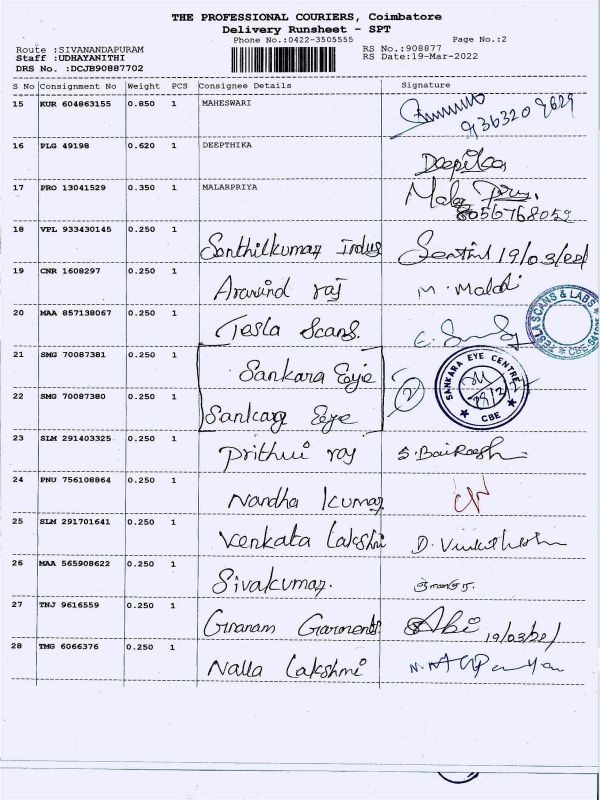 THE PROFESSIONAL COURIERS, Coimbatore
Delivery Runsheet - SPT
Phone No.:0422-3505555 Page No.:2
Route :SIVANANDAPURAM RS No.:908877
Staff :UDHAYANITHI RS Date:19-Mar-2022
DRS No. :DCJB90887702
S No Consignment No Weight PCS Consignee Details Signature
15 KUR 604863155 0.850 1 MAHESWARI
16 PLG 49198 0.620 1 DEEPTHIKA
17 PRO 13041529 0.350 1 MALARPRIYA
8056768052
18 VPL 933430145 0.250 1 Senthilkumar Indus 19/03/22
19 CNR 1608297 0.250 1 Aravind raj
20 MAA 857138067 0.250 1 Tesla Scans.
TESLA SCANS & LABS
21 SMG 70087381 0.250 1 Sankara Eye
2
SANKARA EYE CENTRE
CBE
22 SMG 70087380 0.250 1 Sankara Eye
23 SLM 291403325 0.250 1 Prithvi raj
24 PNU 756108864 0.250 1 Nandha kumar
25 SLM 291701641 0.250 1 Venkata Lakshmi
26 MAA 565908622 0.250 1 Sivakumar.
27 TNJ 9616559 0.250 1 Gnanam Garments Abi 19/03/22
28 TMG 6066376 0.250 1 Nalla Lakshmi